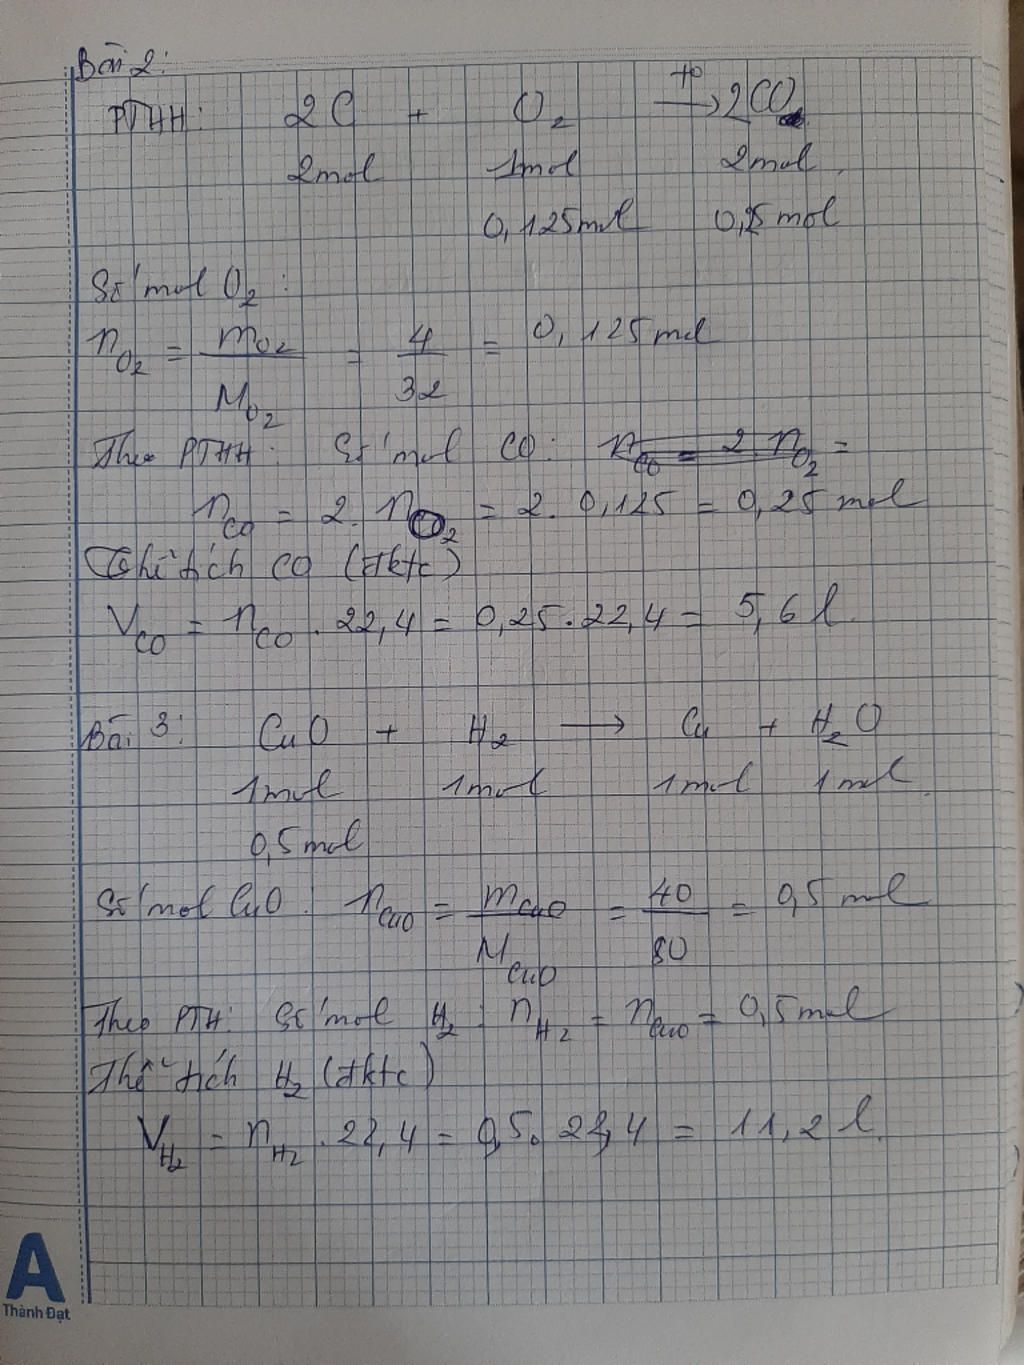 Bài 2:
PTHH: 2C + O₂ —t°→ 2CO
2mol 1mol 2mol
0,125mol 0,25mol
Số mol O₂:
n_O₂ = m_O₂ / M_O₂ = 4 / 32 = 0,125 mol
Theo PTHH: Số mol CO: ~~n_CO = 2 n_O₂~~ =
n_CO = 2. n_O₂ = 2. 0,125 = 0,25 mol
Thể tích CO (đktc)
V_CO = n_CO . 22,4 = 0,25.22,4 = 5,6 l.
Bài 3: CuO + H₂ → Cu + H₂O
1mol 1mol 1mol 1mol
0,5mol
Số mol CuO: n_CuO = m_CuO / M_CuO = 40 / 80 = 0,5 mol
Theo PTH: Số mol H₂: n_H₂ = n_CuO = 0,5mol
Thể tích H₂ (đktc)
V_H₂ = n_H₂ .22,4 = 0,5. 22,4 = 11,2 l.
A
Thành Đạt